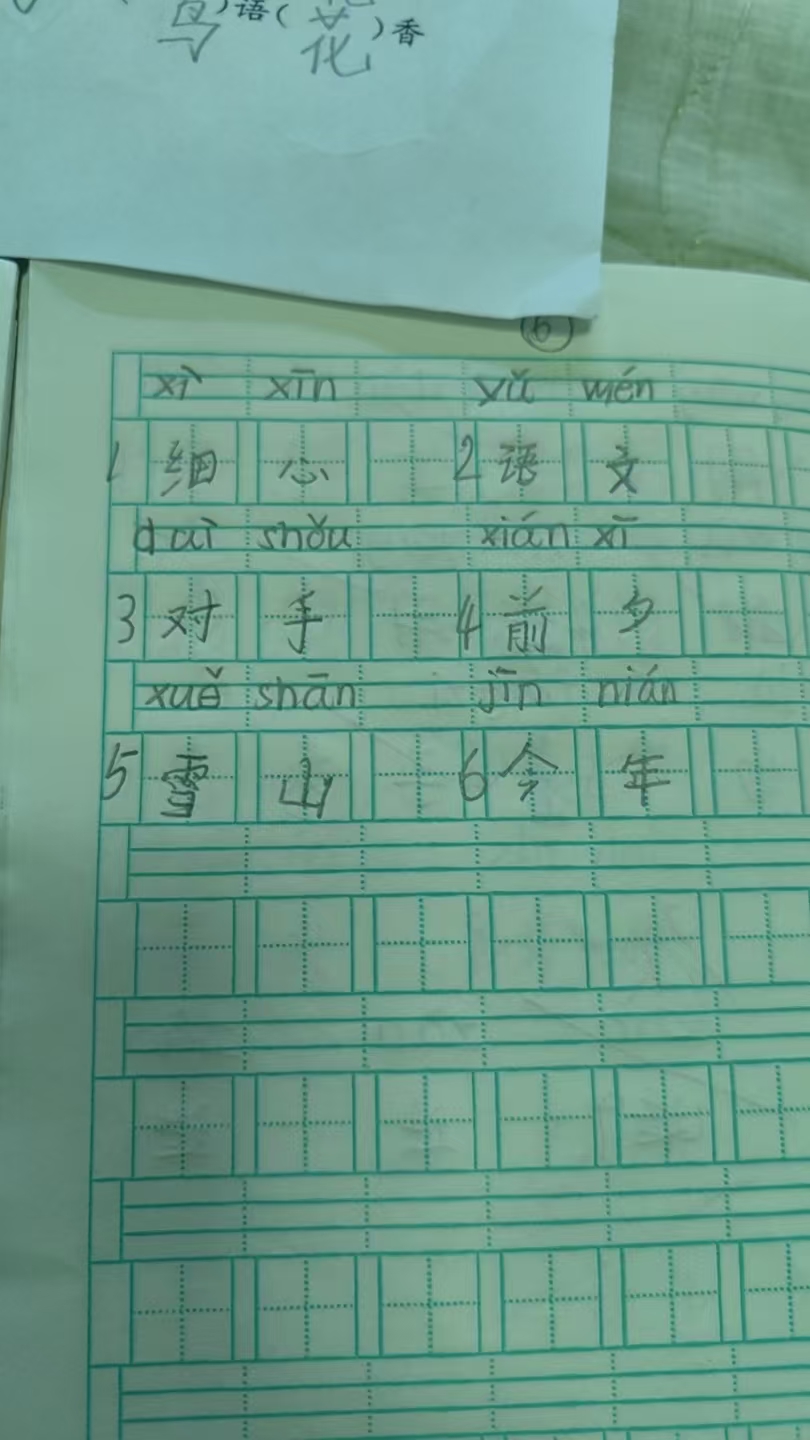 鸟)语(花)香
⑥
xì xīn yǔ wén
1 细 心 2 语 文
duì shǒu xián xī
3 对 手 4 前 夕
xuě shān jīn nián
5 雪 山 6 今 年